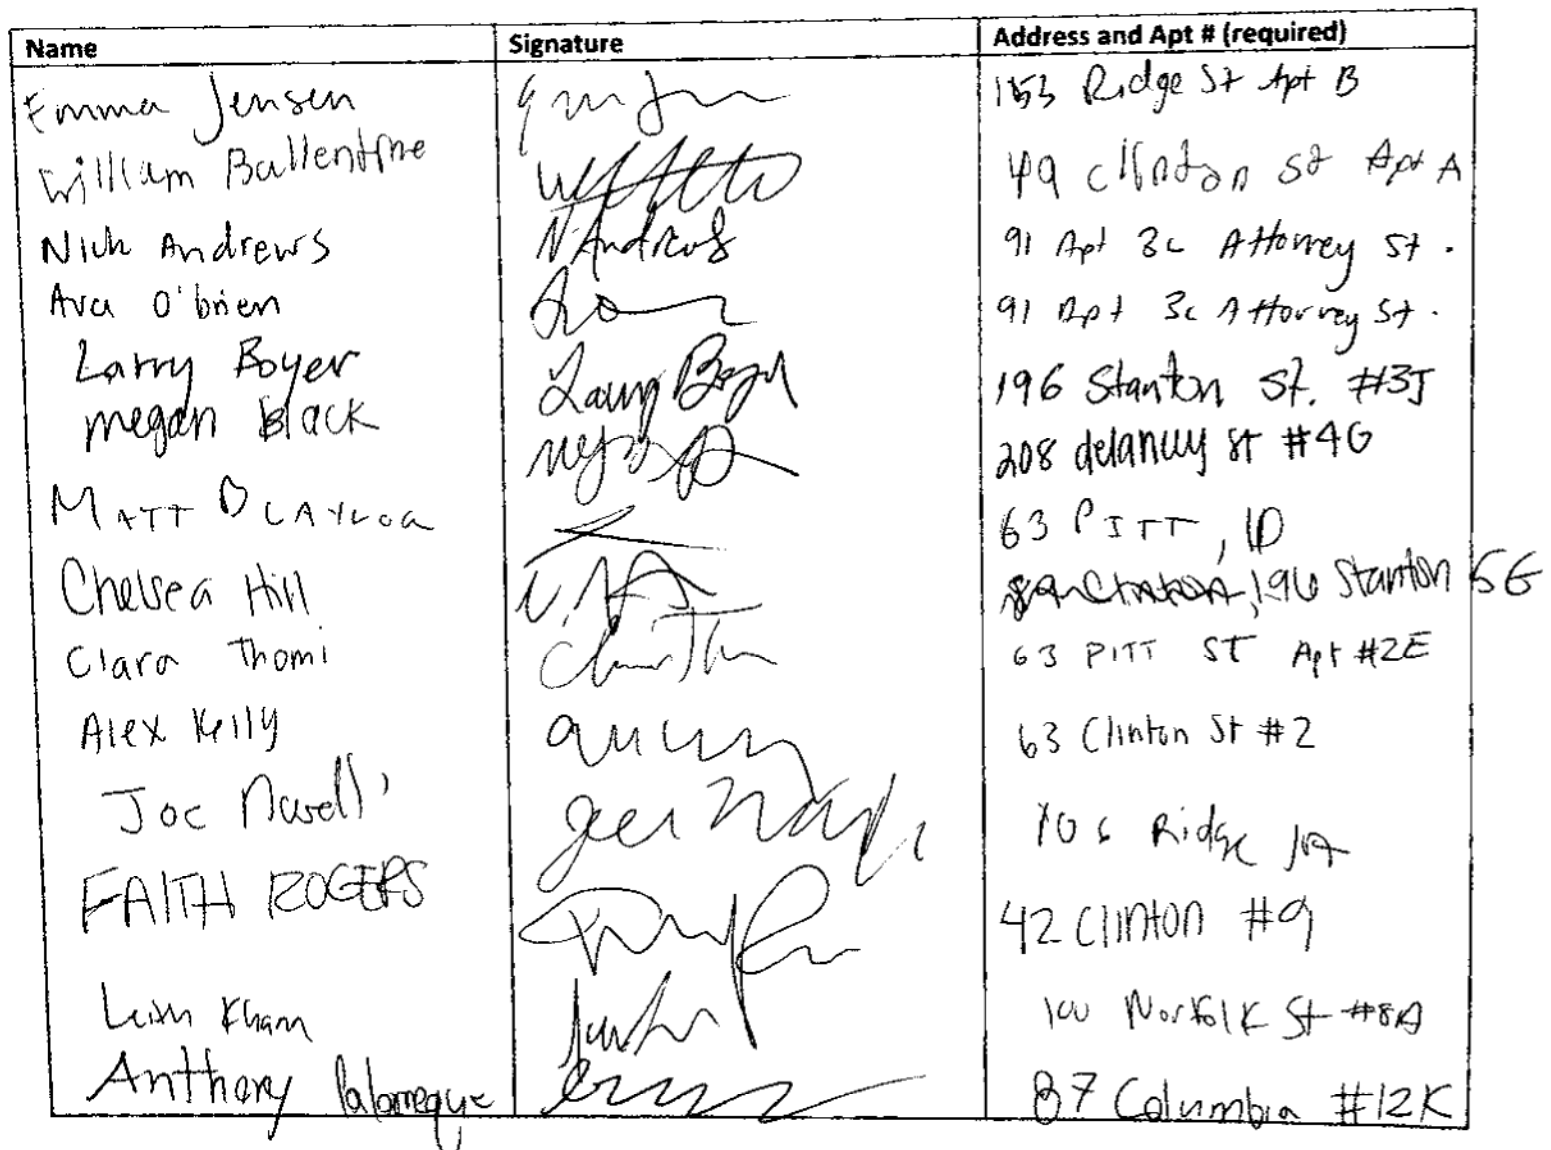 Name Signature Address and Apt # (required)
Emma Jensen 153 Ridge St Apt B
William Ballentine 49 Clinton St Apt A
Nick Andrews N Andrews 91 Apt 3c Attorney St.
Ava O'brien 91 Apt 3c Attorney St.
Larry Boyer Larry Boyer 196 Stanton St. #3J
megan Black 208 delancey St #4G
MATT BLAYLOCK 63 PITT, 1D
Chelsea Hill 196 Stanton 5G
Clara Thomi 63 PITT ST Apt #2E
Alex Kelly 63 Clinton St #2
Joe 106 Ridge 1A
FAITH ROGERS 42 Clinton #9
Kham 100 Norfolk St #8A
Anthony 87 Columbia #12K